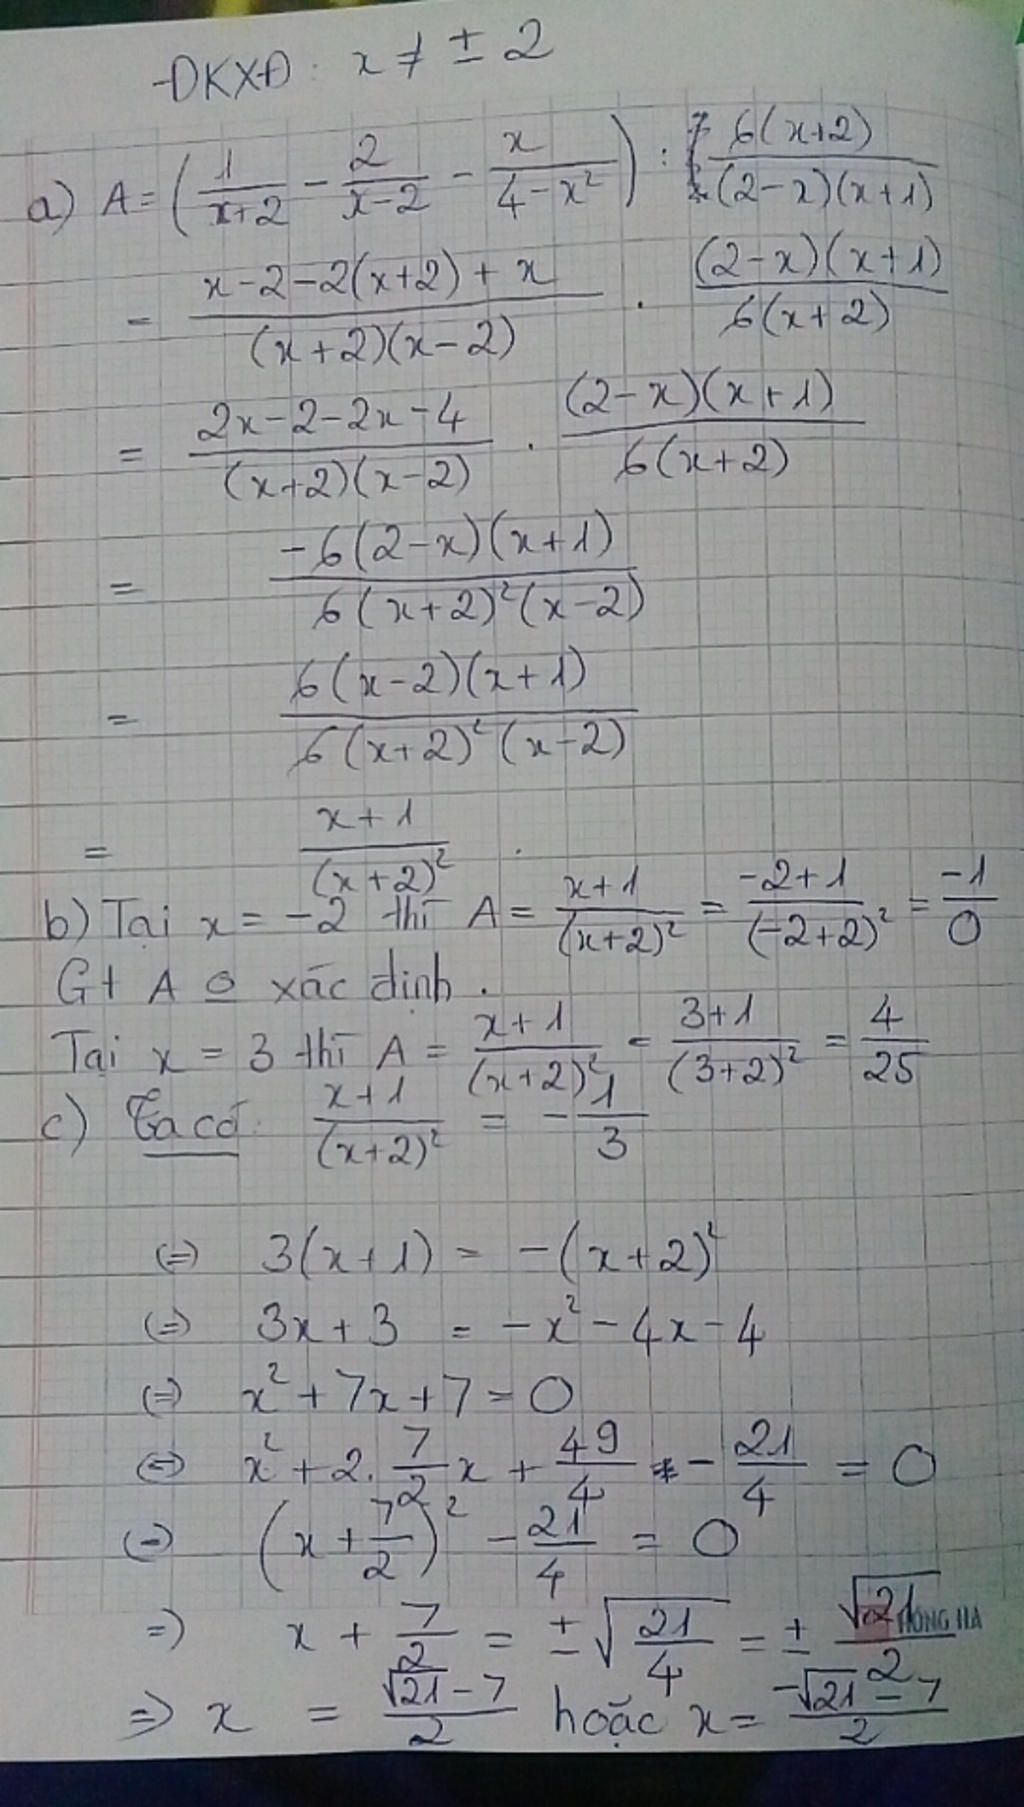 -ĐKXĐ: x ≠ ± 2
a) A = (1/(x+2) - 2/(x-2) - x/(4-x²)) : 6(x+2)/((2-x)(x+1))
= (x-2-2(x+2)+x)/((x+2)(x-2)) . ((2-x)(x+1))/(6(x+2))
= (2x-2-2x-4)/((x+2)(x-2)) . ((2-x)(x+1))/(6(x+2))
= (-6(2-x)(x+1))/(6(x+2)²(x-2))
= (6(x-2)(x+1))/(6(x+2)²(x-2))
= (x+1)/(x+2)² .
b) Tại x = -2 thì A = (x+1)/(x+2)² = (-2+1)/(-2+2)² = -1/0
Gt A O xác định .
Tại x = 3 thì A = (x+1)/(x+2)² = (3+1)/(3+2)² = 4/25
c) Ta có: (x+1)/(x+2)² = -1/3
(=) 3(x+1) = -(x+2)²
(=) 3x+3 = -x²-4x-4
(=) x²+7x+7=0
(=) x²+2.7/2x + 49/4 - 21/4 = 0
(=) (x+7/2)² - 21/4 = 0
=) x + 7/2 = ±√(21/4) = ± √21/2
=) x = (√21-7)/2 hoặc x = (-√21-7)/2